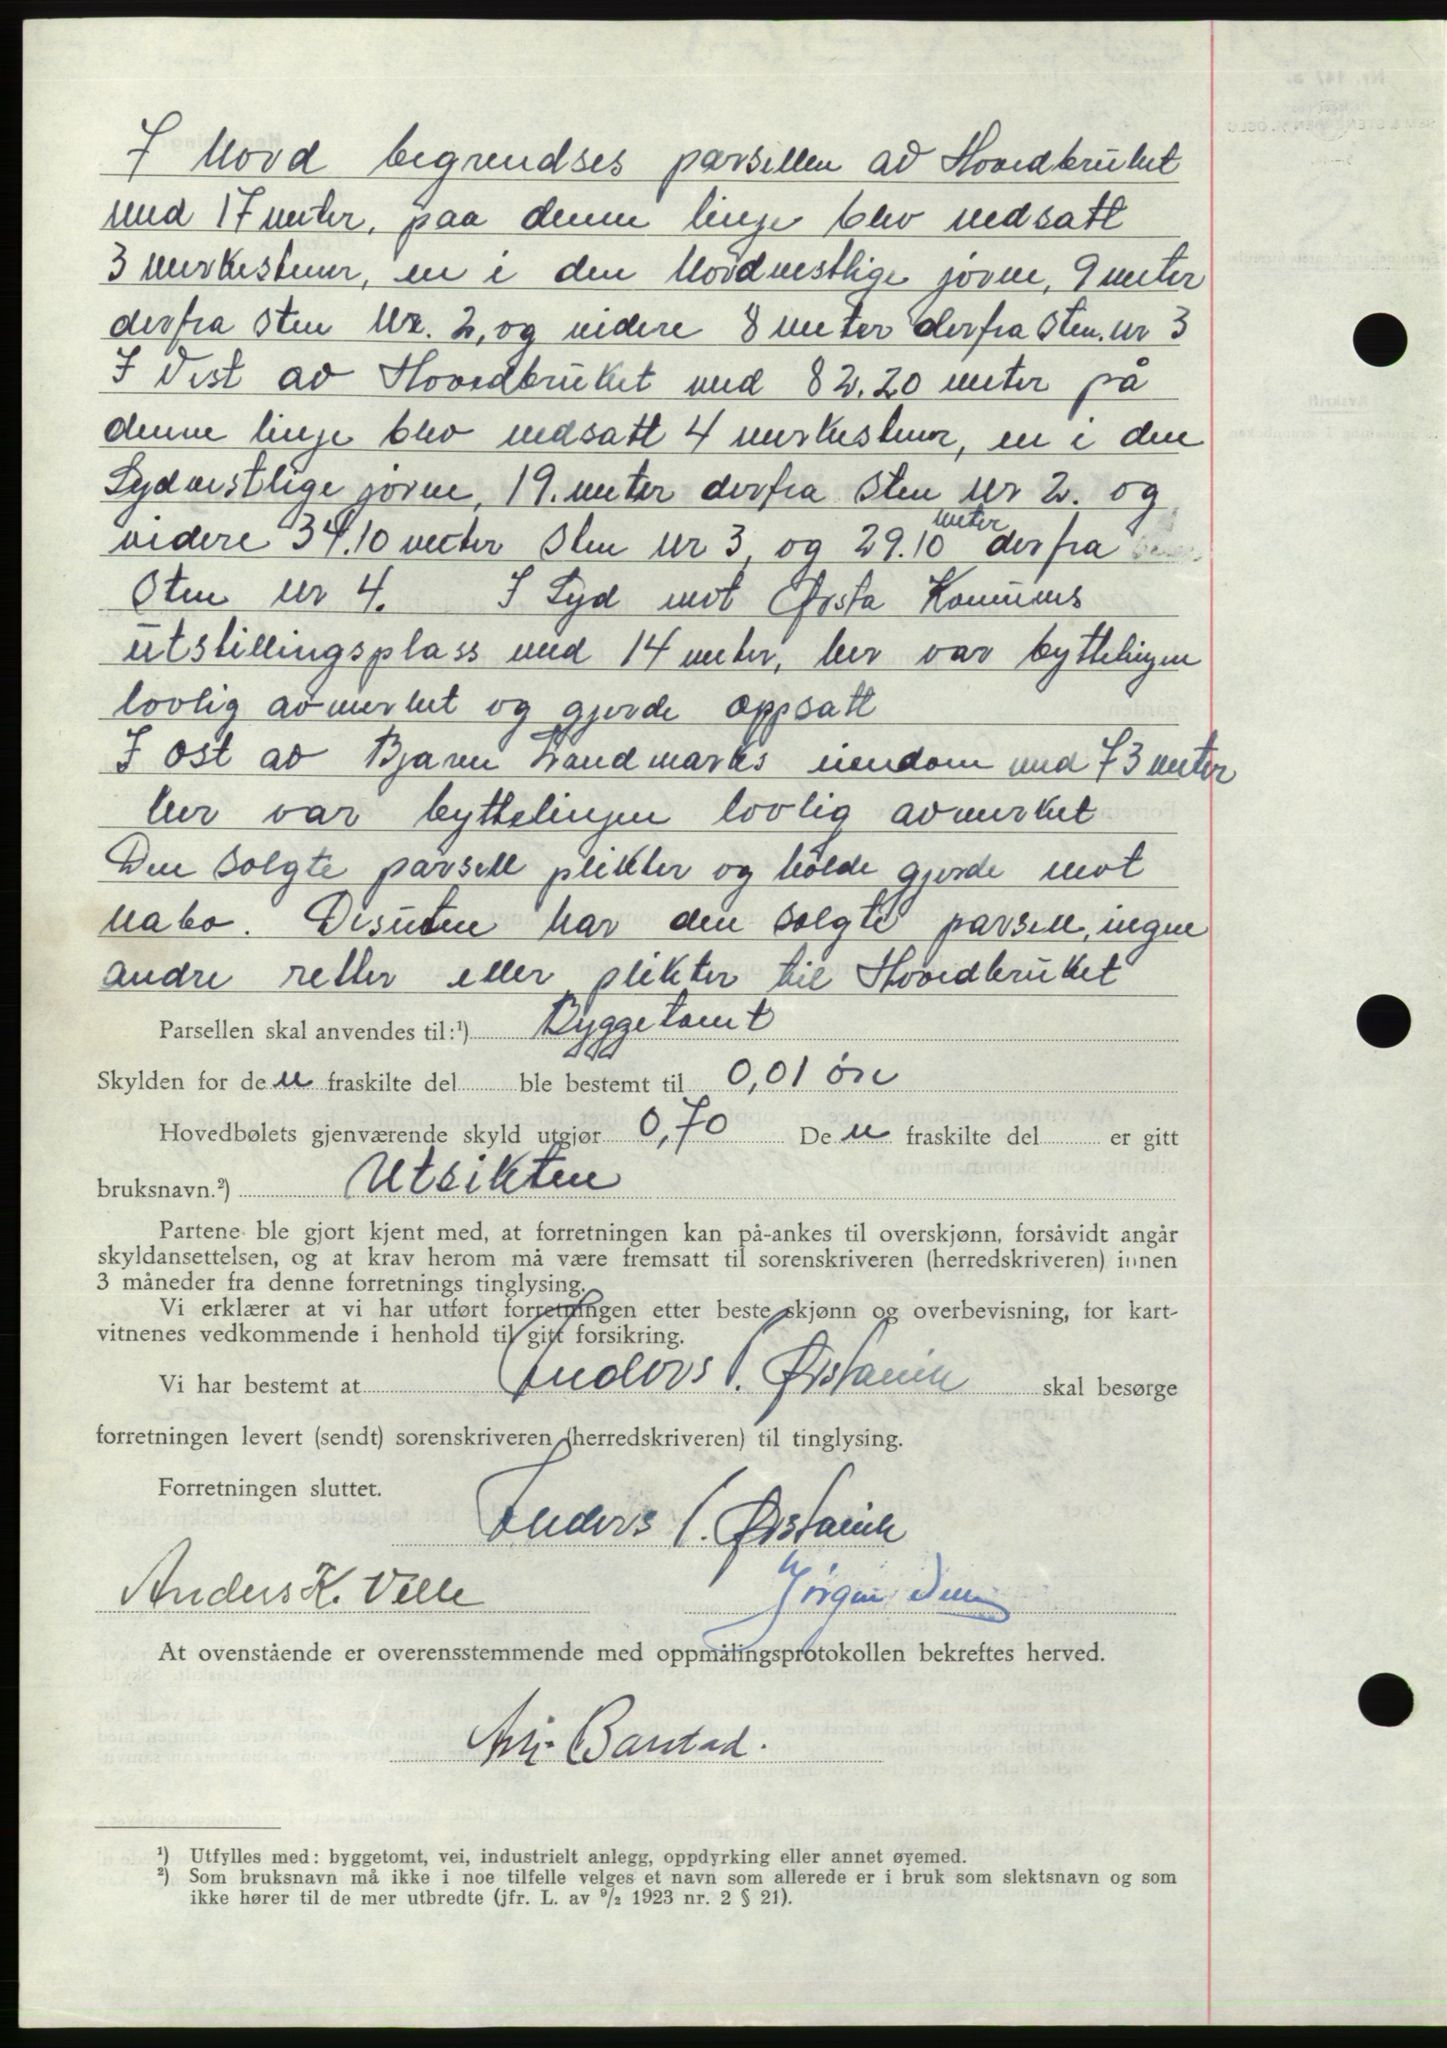 I Nord begrendses parsellen av Hovedbruket
med 17 meter, paa denne linje blev nedsatt
3 merkestener, en i den Nordvestlige jørne, 9 meter
derfra sten Nr. 2, og videre 8 meter derfra sten. nr 3
I Vest av Hovedbruket med 82.20 meter på
denne linje blev nedsatt 4 merkestener, en i den
Sydvestlige jørne, 19. meter derfra sten nr 2. og
videre 34.10 meter sten nr 3, og 29.10 meter derfra
sten nr 4. I Syd mot Ørsta Komunes
utstillingsplass med 14 meter, her var byttelinjen
lovlig avmerket og gjerde oppsatt
I ost av Bjarne Landmarks eiendom med 73 meter
her var byttelinjen lovlig avmerket
Den solgte parsell plikter og holde gjerde mot
nabo. Desuten har den solgte parsell, ingen
andre retter eller plikter til Hovedbruket
Parsellen skal anvendes til:¹) Byggetomt
Skylden for den fraskilte del ble bestemt til 0,01 øre
Hovedbølets gjenværende skyld utgjør 0,70 Den fraskilte del er gitt
bruksnavn.²) Utsikten
Partene ble gjort kjent med, at forretningen kan på-ankes til overskjønn, forsåvidt angår
skyldansettelsen, og at krav herom må være fremsatt til sorenskriveren (herredskriveren) innen
3 måneder fra denne forretnings tinglysing.
Vi erklærer at vi har utført forretningen etter beste skjønn og overbevisning, for kart-
vitnenes vedkommende i henhold til gitt forsikring.
Vi har bestemt at Anders S. Ørstavik skal besørge
forretningen levert (sendt) sorenskriveren (herredskriveren) til tinglysing.
Forretningen sluttet.
Anders S. Ørstavik
Anders K. Velle Jørgen
At ovenstående er overensstemmende med oppmålingsprotokollen bekreftes herved.
Barstad.
¹) Utfylles med: byggetomt, vei, industrielt anlegg, oppdyrking eller annet øyemed.
²) Som bruksnavn må ikke i noe tilfelle velges et navn som allerede er i bruk som slektsnavn og som
ikke hører til de mer utbredte (jfr. L. av 9/2 1923 nr. 2 § 21).